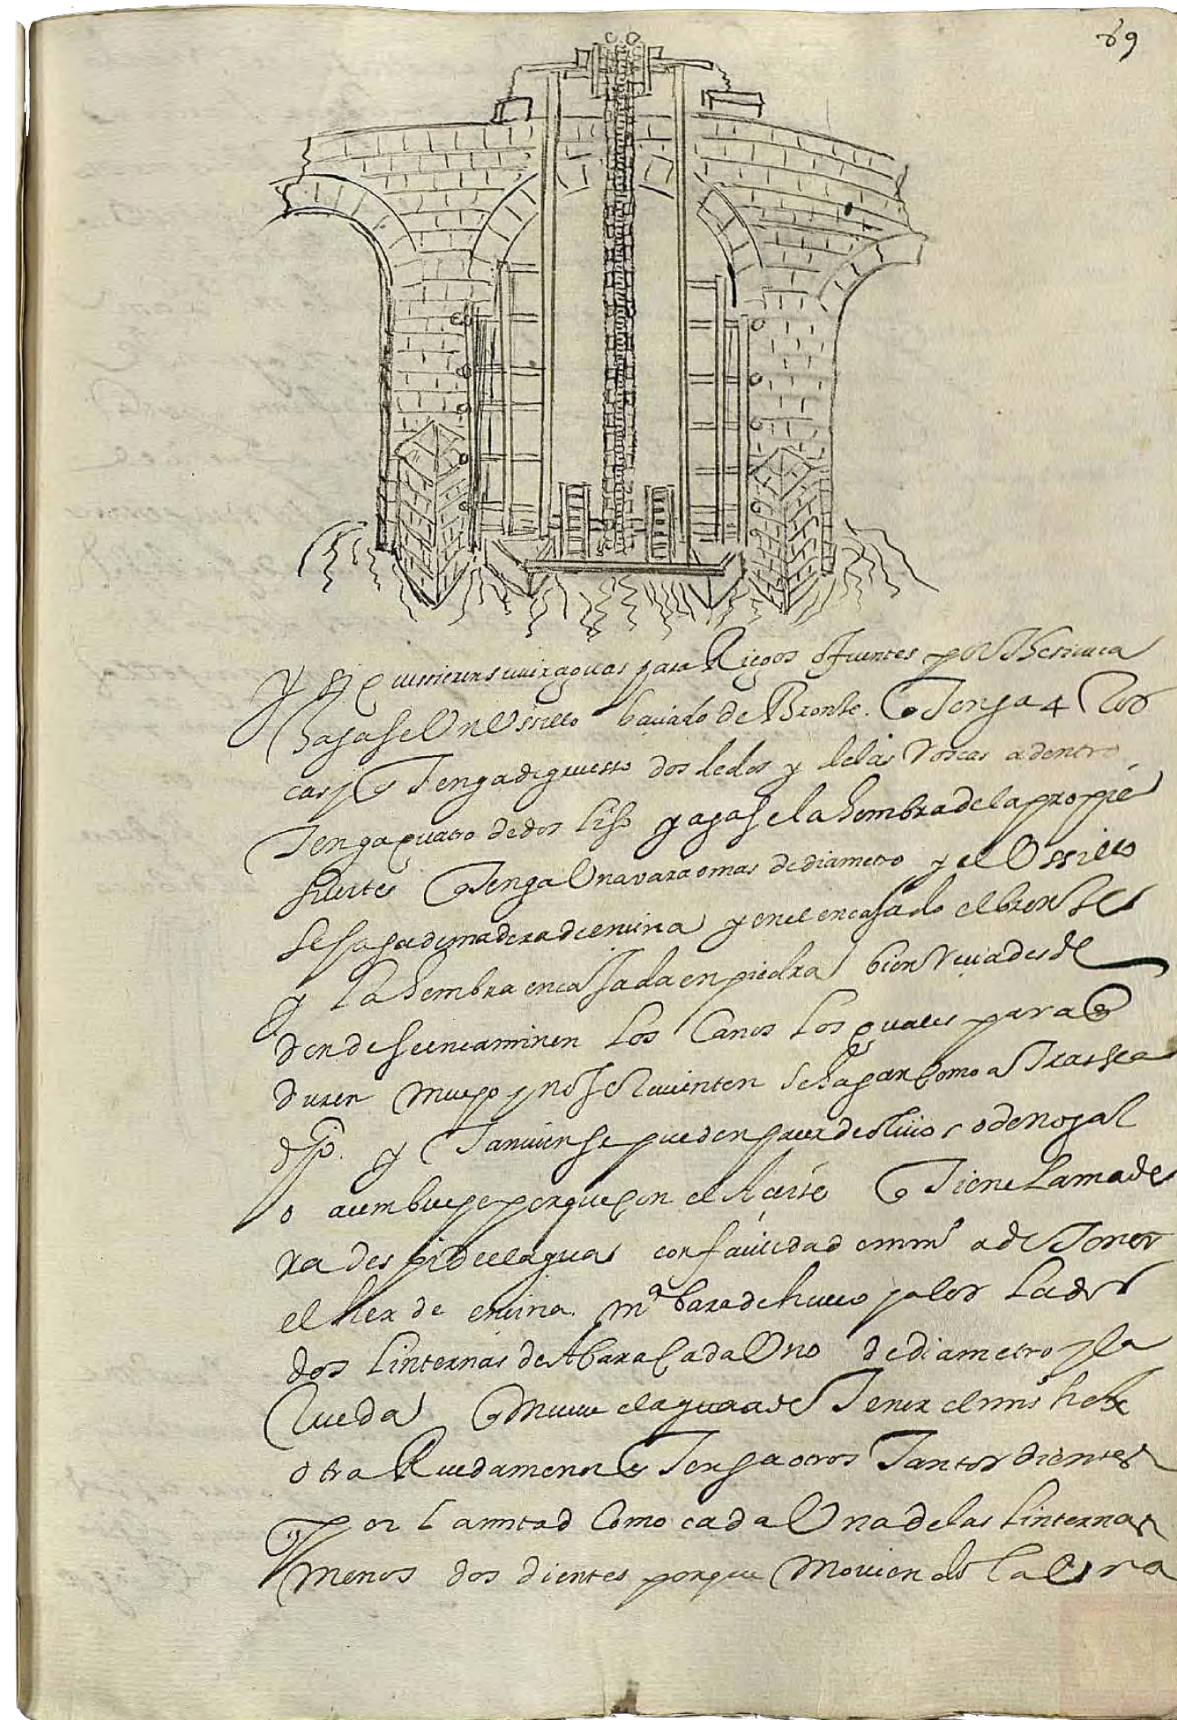 69
Y si quisieren suvir aguas para Riegos o fuentes por
hagase Un Usillo baciado de Bronse. q Tenga 4 Ros
cas y q Tenga de gruesso dos dedos y de las Roscas a dentro
Tenga quatro dedos liso y agase la hembra de la propie
suerte q Tenga Una vara o mas de diametro y el Ussillo
se haga de madera de encina y en el encasado el bronse
y La hembra encasada en piedra bien
donde se encaminen Los Canos Los quales para q
duren mucho y no se Rebienten se hagan Como a Tras
dho. y Tanvien se pueden hacer de olivo o de nogal
o porque con el Aceite q Tiene La made
ra despide el agua con facilidad a de Tener
el hex de encina mª bara de hueco y a los Lados
dos Linternas de A bara Cada Uno de diametro y la
Rueda q Mueve el agua a de Tener el mis hexe
otra Rueda menor q Tenga otros Tantos dientes
por La mitad Como cada Una de las Linternas
menos dos dientes porque Moviendo La